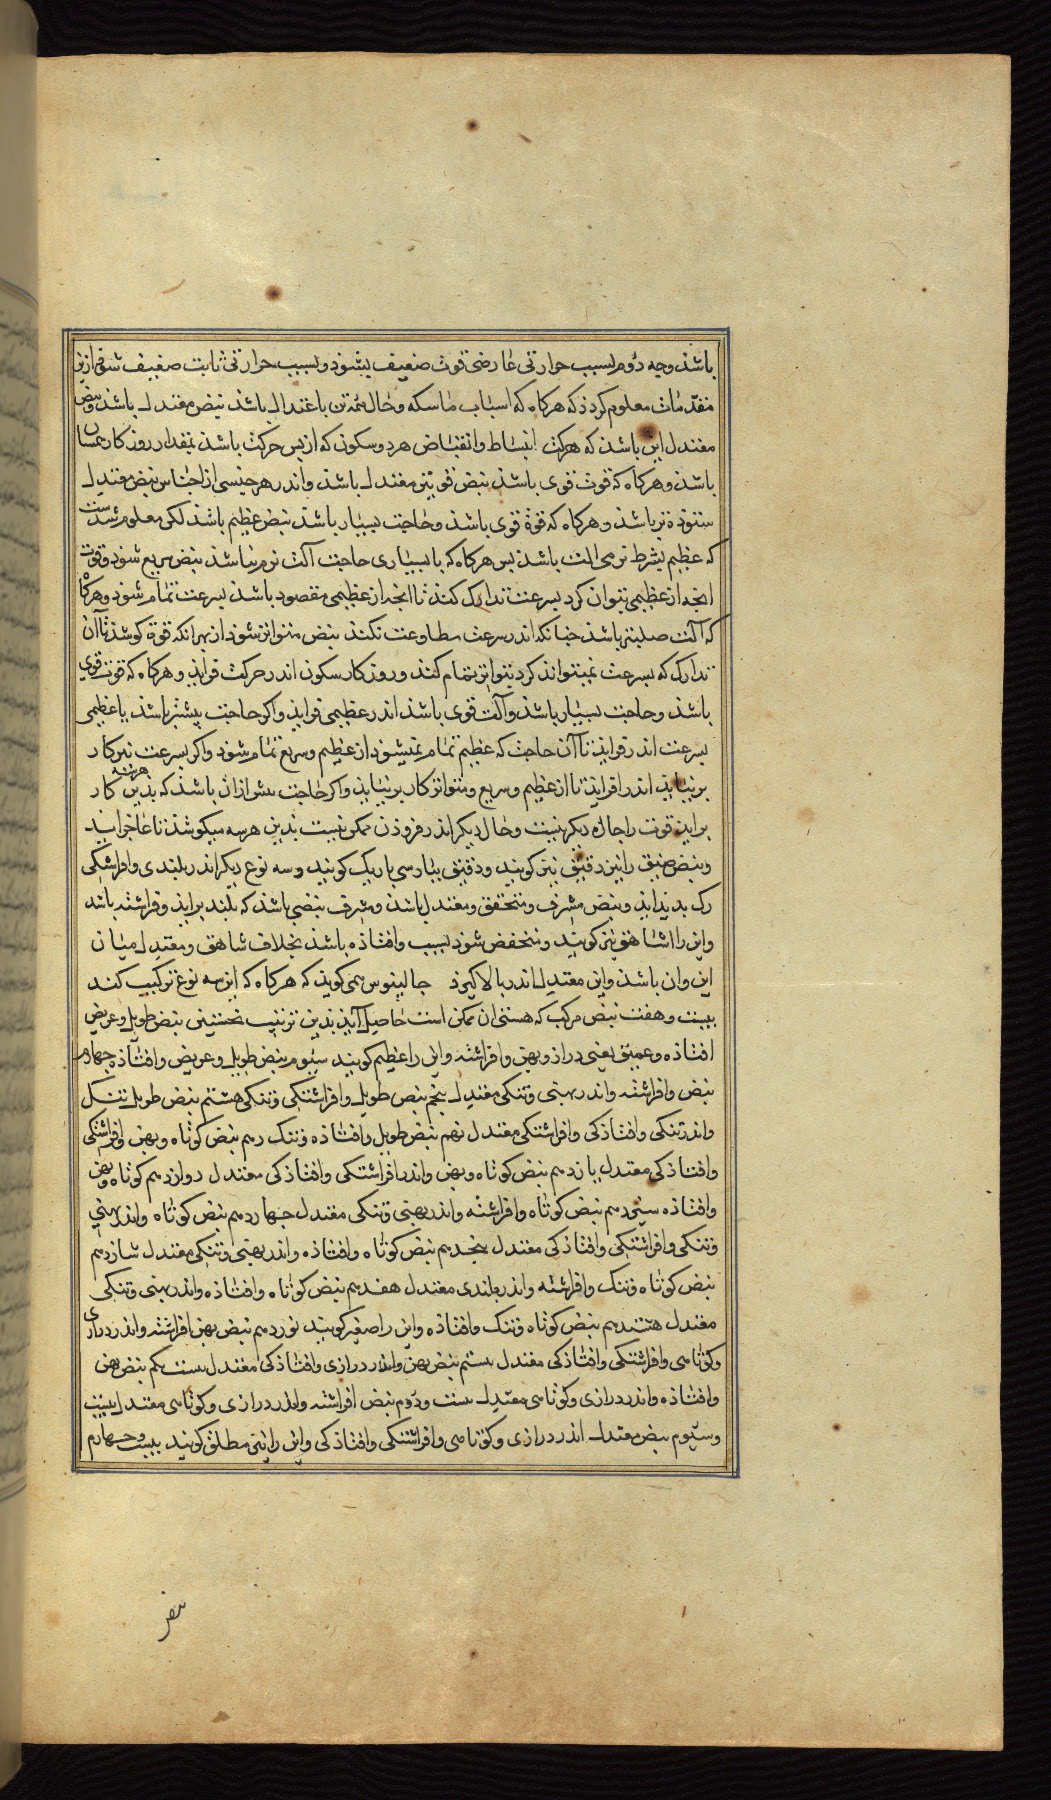 باشذ وجه دوم بسبب حرارتی عارضی قوت ضعیف بشوذ و بسبب حرارتی ثابت ضعیف شوذ ازین
مقدمات معلوم کردذ که هرکاه که اسباب ماسکه و حال همه تن باعتدال باشذ نبض معتدل باشذ و نبض
معتدل این باشذ که حرکت انبساط و انقباض هر دو سکون که از پس حرکت باشذ بمقدار روزکار یکسان
باشذ و هرکاه که قوت قوی باشذ نبض قوی تر معتدل باشذ و اندر هر جنسی از اجناس نبض معتدل
ستوذه تر باشذ و هرکاه که قوة قوی باشذ و حاجت بسیار باشذ نبض عظیم باشذ لکن معلوم شدست
که عظیم بشرط نرمی الت باشذ پس هرکاه که با بسیاری حاجت آلت نرم نباشذ نبض سریع شوذ و قوت
انچه از عظیمی نتوان کرد بسرعت تدارک کنذ تا انچه از عظیمی مقصود باشذ بسرعت تمام شوذ و هرکاه
که آلت صلبتر باشذ چنانکه اندر سرعت مطاوعت نکنذ نبض متواتر شوذ از بهر انکه قوة کوشذ تا آن
تدارک که بسرعت نمیتوانذ کرد بتواتر تمام کنذ و روزکار سکون اندر حرکت فزایذ و هرکاه که قوت قوی
باشذ و حاجت بسیار باشذ و آلت قوی باشذ اندر عظیمی فزایذ و اکر حاجت بیشتر باشذ با عظیمی
بسرعت اندر فزایذ تا آن حاجت که عظیم تمام نمیشوذ از عظیم و سریع تمام شوذ و اکر بسرعت نیز کار
بر نیایذ اندر افزایذ تا از عظیم و سریع و متواتر کار بر نیایذ و اکر حاجت بیش ازان باشذ که بذین هرسه کار
برایذ قوت را چاره دیکر نیست و حال دیکر اندر فزوذن ممکن نیست بذین هرسه میکوشذ تا عاجز ایذ
و نبض ضیق را نیز دقیق نیز کویند و دقیق بپارسی باریک کویند و سه نوع دیکر اندر بلندی و افراشتکی
رک بدید اید و نبض مشرف و منخفق و معتدل باشذ و مشرف نبضی باشذ که بلند برایذ و فراشته باشد
و این را شاهق نیز کویند و منخفض شوذ بسبب و افتاذه باشذ بخلاف شاهق و معتدل میان
این وان باشذ و این معتدل اندر بالا کیرذ جالینوس همی کویذ که هرکاه که این سه نوع ترکیب کند
بیست و هفت نبض مرکب که هستی ان ممکن است حاصل آید بذین ترتیب نخستین نبض طویل و عریض
افتاذه و عمیق یعنی دراز و پهن و افراشته و این را عظیم کویند سیوم نبض طویل و عریض و افتاذه چهارم
نبض و افراشته و اندر پهنی و تنکی معتدل پنجم نبض طویل و افراشتکی و تنکی هشتم نبض طویل تنک
و اندر تنکی و افتاذکی و افراشتکی معتدل نهم نبض طویل و افتاذه و تنک دهم نبض کوتاه و پهن و افراشتکی
و افتاذکی معتدل یازدهم نبض کوتاه و پهن و اندر افراشتکی و افتاذکی معتدل دوازدهم کوتاه و پهن
و افتاذه سیزدهم نبض کوتاه و افراشته و اندر پهنی و تنکی معتدل چهاردهم نبض کوتاه و اندر پهنی
و تنکی و افراشتکی و افتاذکی معتدل پنجدهم نبض کوتاه و افتاذه و اندر پهنی و تنکی معتدل شازدهم
نبض کوتاه و تنک و افراشته و اندر بلندی معتدل هفدهم نبض کوتاه و افتاذه و اندر پهنی و تنکی
معتدل هشتدهم نبض کوتاه و تنک و افتاذه و این را صغیر کویند نوزدهم نبض پهن افراشته و اندر درازی
و کوتاهی و افراشتکی و افتاذکی معتدل بیستم نبض پهن و اندر درازی و افتاذکی معتدل بیست یکم نبض پهن
و افتاذه و اندر درازی و کوتاهی معتدل بیست و دوم نبض افراشته و اندر درازی و کوتاهی معتدل بیست
و سیوم نبض معتدل اندر درازی و کوتاهی و افراشتکی و افتاذکی و این را نبض مطلق کویند بیست و چهارم
نبض